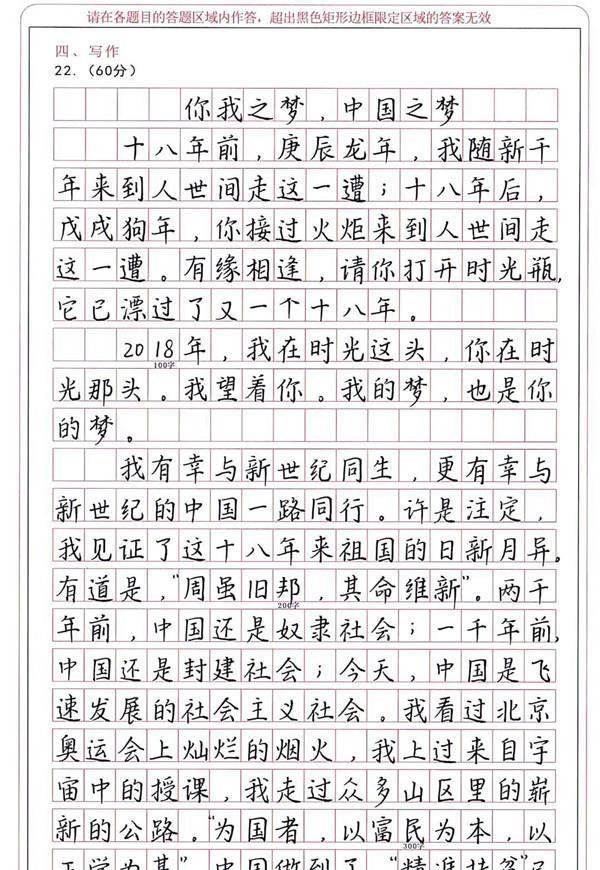 请在各题目的答题区域内作答，超出黑色矩形边框限定区域的答案无效
四、写作
22.（60分）
你我之梦，中国之梦
十八年前，庚辰龙年，我随新千
年来到人世间走这一遭；十八年后，
戊戌狗年，你接过火炬来到人世间走
这一遭。有缘相逢，请你打开时光瓶，
它已漂过了又一个十八年。
2018年，我在时光这头，你在时
100字
光那头。我望着你。我的梦，也是你
的梦。
我有幸与新世纪同生，更有幸与
新世纪的中国一路同行。许是注定，
我见证了这十八年来祖国的日新月异。
有道是，“周虽旧邦，其命维新”。两千
200字
年前，中国还是奴隶社会；一千年前，
中国还是封建社会；今天，中国是飞
速发展的社会主义社会。我看过北京
奥运会上灿烂的烟火，我上过来自宇
宙中的授课，我走过众多山区里的崭
新的公路。“为国者，以富民为本，以
300字
正学为基”，中国做到了，“精准扶贫”